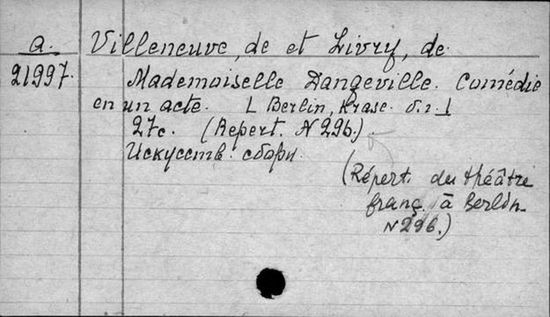 a. Villeneuve, de et Livry, de.
21997. Mademoiselle Dangeville. Comédie
en un acte. [Berlin, Krase. б.г.]
27с. (Repert. N 296.)
Искусств. сборн.
(Répert. du théâtre
franç. à Berlin
N 296.)